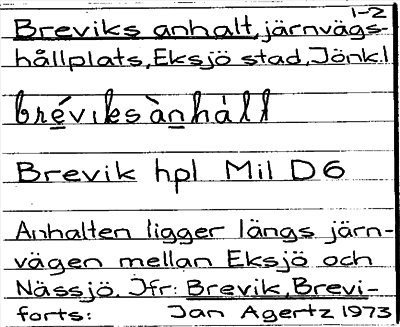 1-2
Breviks anhalt, järnvägs-
hållplats, Eksjö stad, Jönk.l
bréviksànhàll
Brevik hpl Mil D6
Anhalten ligger längs järn-
vägen mellan Eksjö och
Nässjö. Jfr: Brevik, Brevi-
forts: Jan Agertz 1973